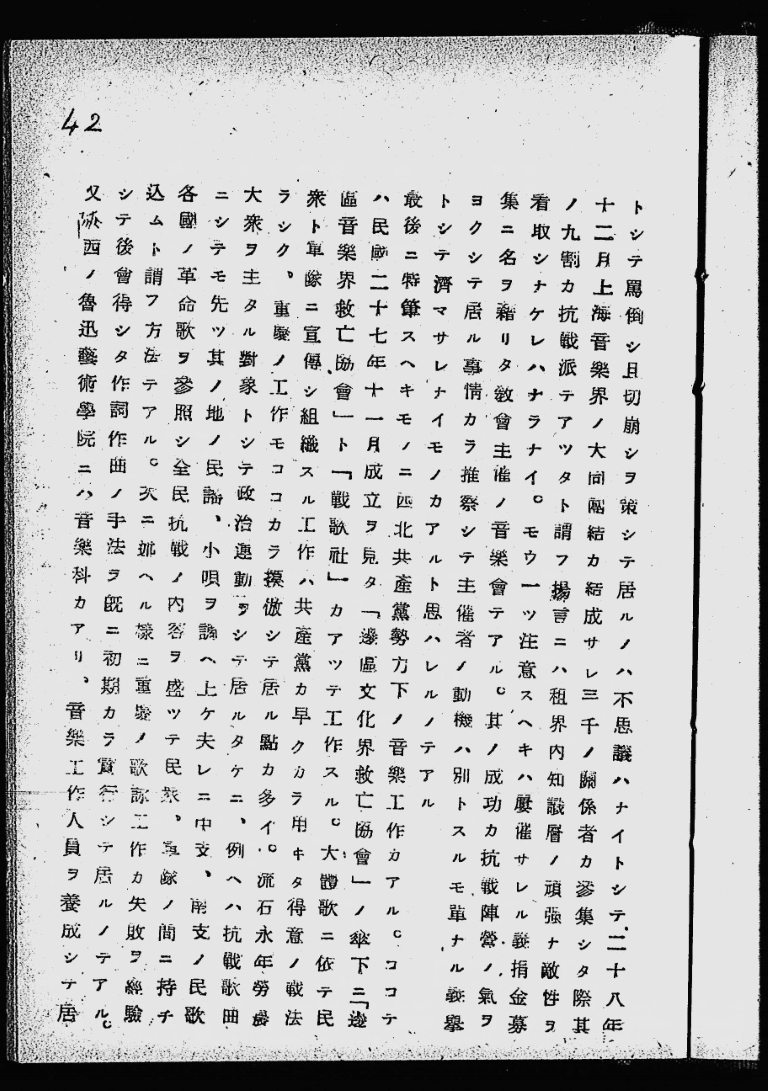 42
トシテ罵倒シ且切崩シヲ策シテ居ルノハ不思議ハナイトシテ、二十八年
十二月上海音樂界ノ大同團結カ結成サレ三千ノ關係者カ參集シタ際其
ノ九割カ抗戰派テアツタト謂フ揚言ニハ租界内知識層ノ頑強ナ敵性ヲ
看取シナケレハナラナイ。モウ一ツ注意スヘキハ屢催サレル義捐金募
集ニ名ヲ藉リタ教會主催ノ音樂會テアル。其ノ成功カ抗戰陣營ノ氣ヲ
ヨクシテ居ル事情カラ推察シテ主催者ノ動機ハ別トスルモ單ナル義擧
トシテ濟マサレナイモノカアルト思ハレルノテアル
最後ニ特筆スヘキモノニ西北共產黨勢力下ノ音樂工作カアル。ココテ
ハ民國二十七年十一月成立ヲ見タ「邊區文化界救亡協會」ノ傘下ニ「邊
區音樂界救亡協會」ト「戰歌社」カアツテ工作スル。大體歌ニ依テ民
衆ト軍隊ニ宣傳シ組織スル工作ハ共產黨カ早クカラ用キタ得意ノ戰法
ラシク、重慶ノ工作モココカラ摸倣シテ居ル點カ多イ。流石永年勞農
大衆ヲ主タル對象トシテ政治運動ヲシテ居ルタケニ、例ヘハ抗戰歌曲
ニシテモ先ツ其ノ地ノ民謠、小唄ヲ調ヘ上ケ夫レニ中支、南支ノ民歌
各國ノ革命歌ヲ參照シ全民抗戰ノ内容ヲ盛ツテ民衆、軍隊ノ間ニ持チ
込ムト謂フ方法テアル。次ニ述ヘル樣ニ重慶ノ歌詠工作カ失敗ヲ經驗
シテ後會得シタ作詞作曲ノ手法ヲ既ニ初期カラ實行シテ居ルノテアル。
又陝西ノ魯迅藝術學院ニハ音樂科カアリ、音樂工作人員ヲ養成シテ居